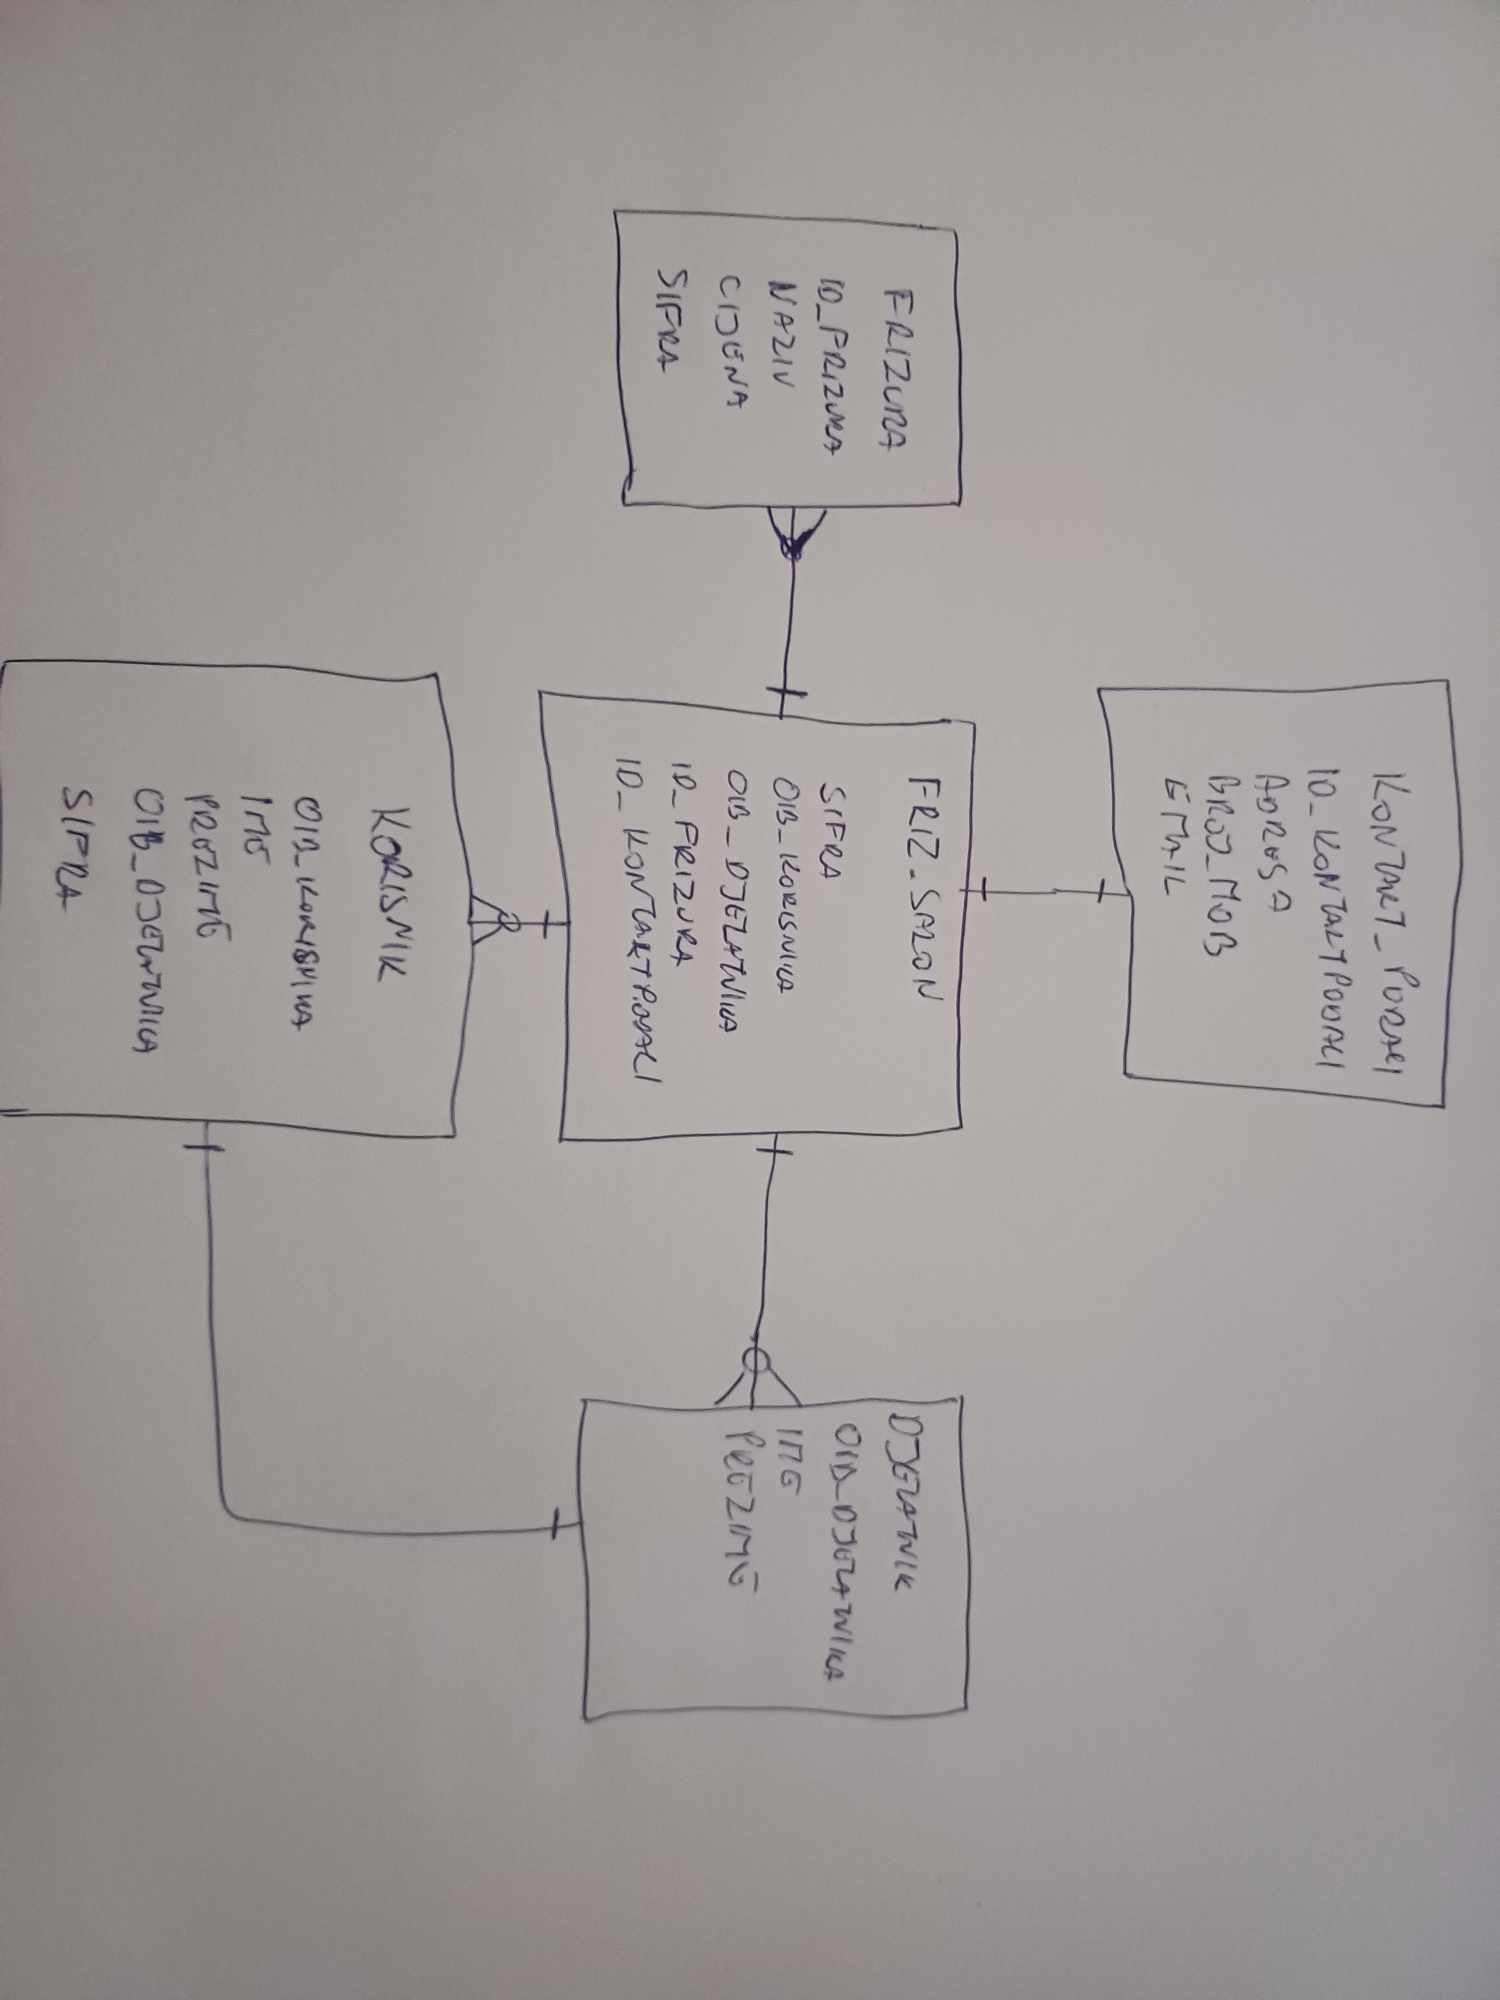 KONTAKT_PODACI
ID_KONTAKTPODACI
ADRESA
BROJ_MOB
EMAIL
FRIZURA
ID_FRIZURA
NAZIV
CIJENA
SIFRA
FRIZ_SALON
SIFRA
OIB_KORISNIKA
OIB_DJELATNIKA
ID_FRIZURA
ID_KONTAKTPODACI
DJELATNIK
OIB_DJELATNIKA
IME
PREZIME
KORISNIK
OIB_KORISNIKA
IME
PREZIME
OIB_DJELATNIKA
SIFRA